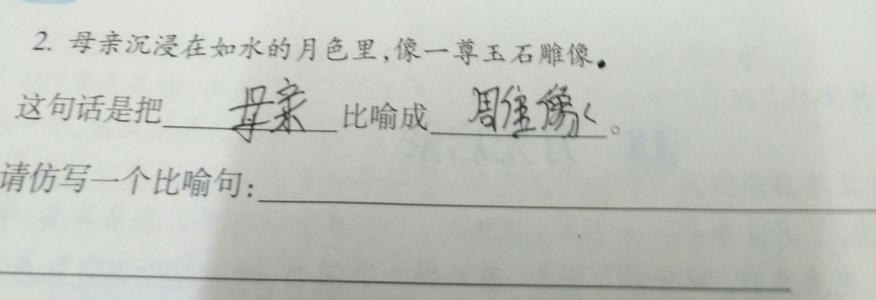 2. 母亲沉浸在如水的月色里,像一尊玉石雕像。
这句话是把 母亲 比喻成 雕像 。
请仿写一个比喻句: